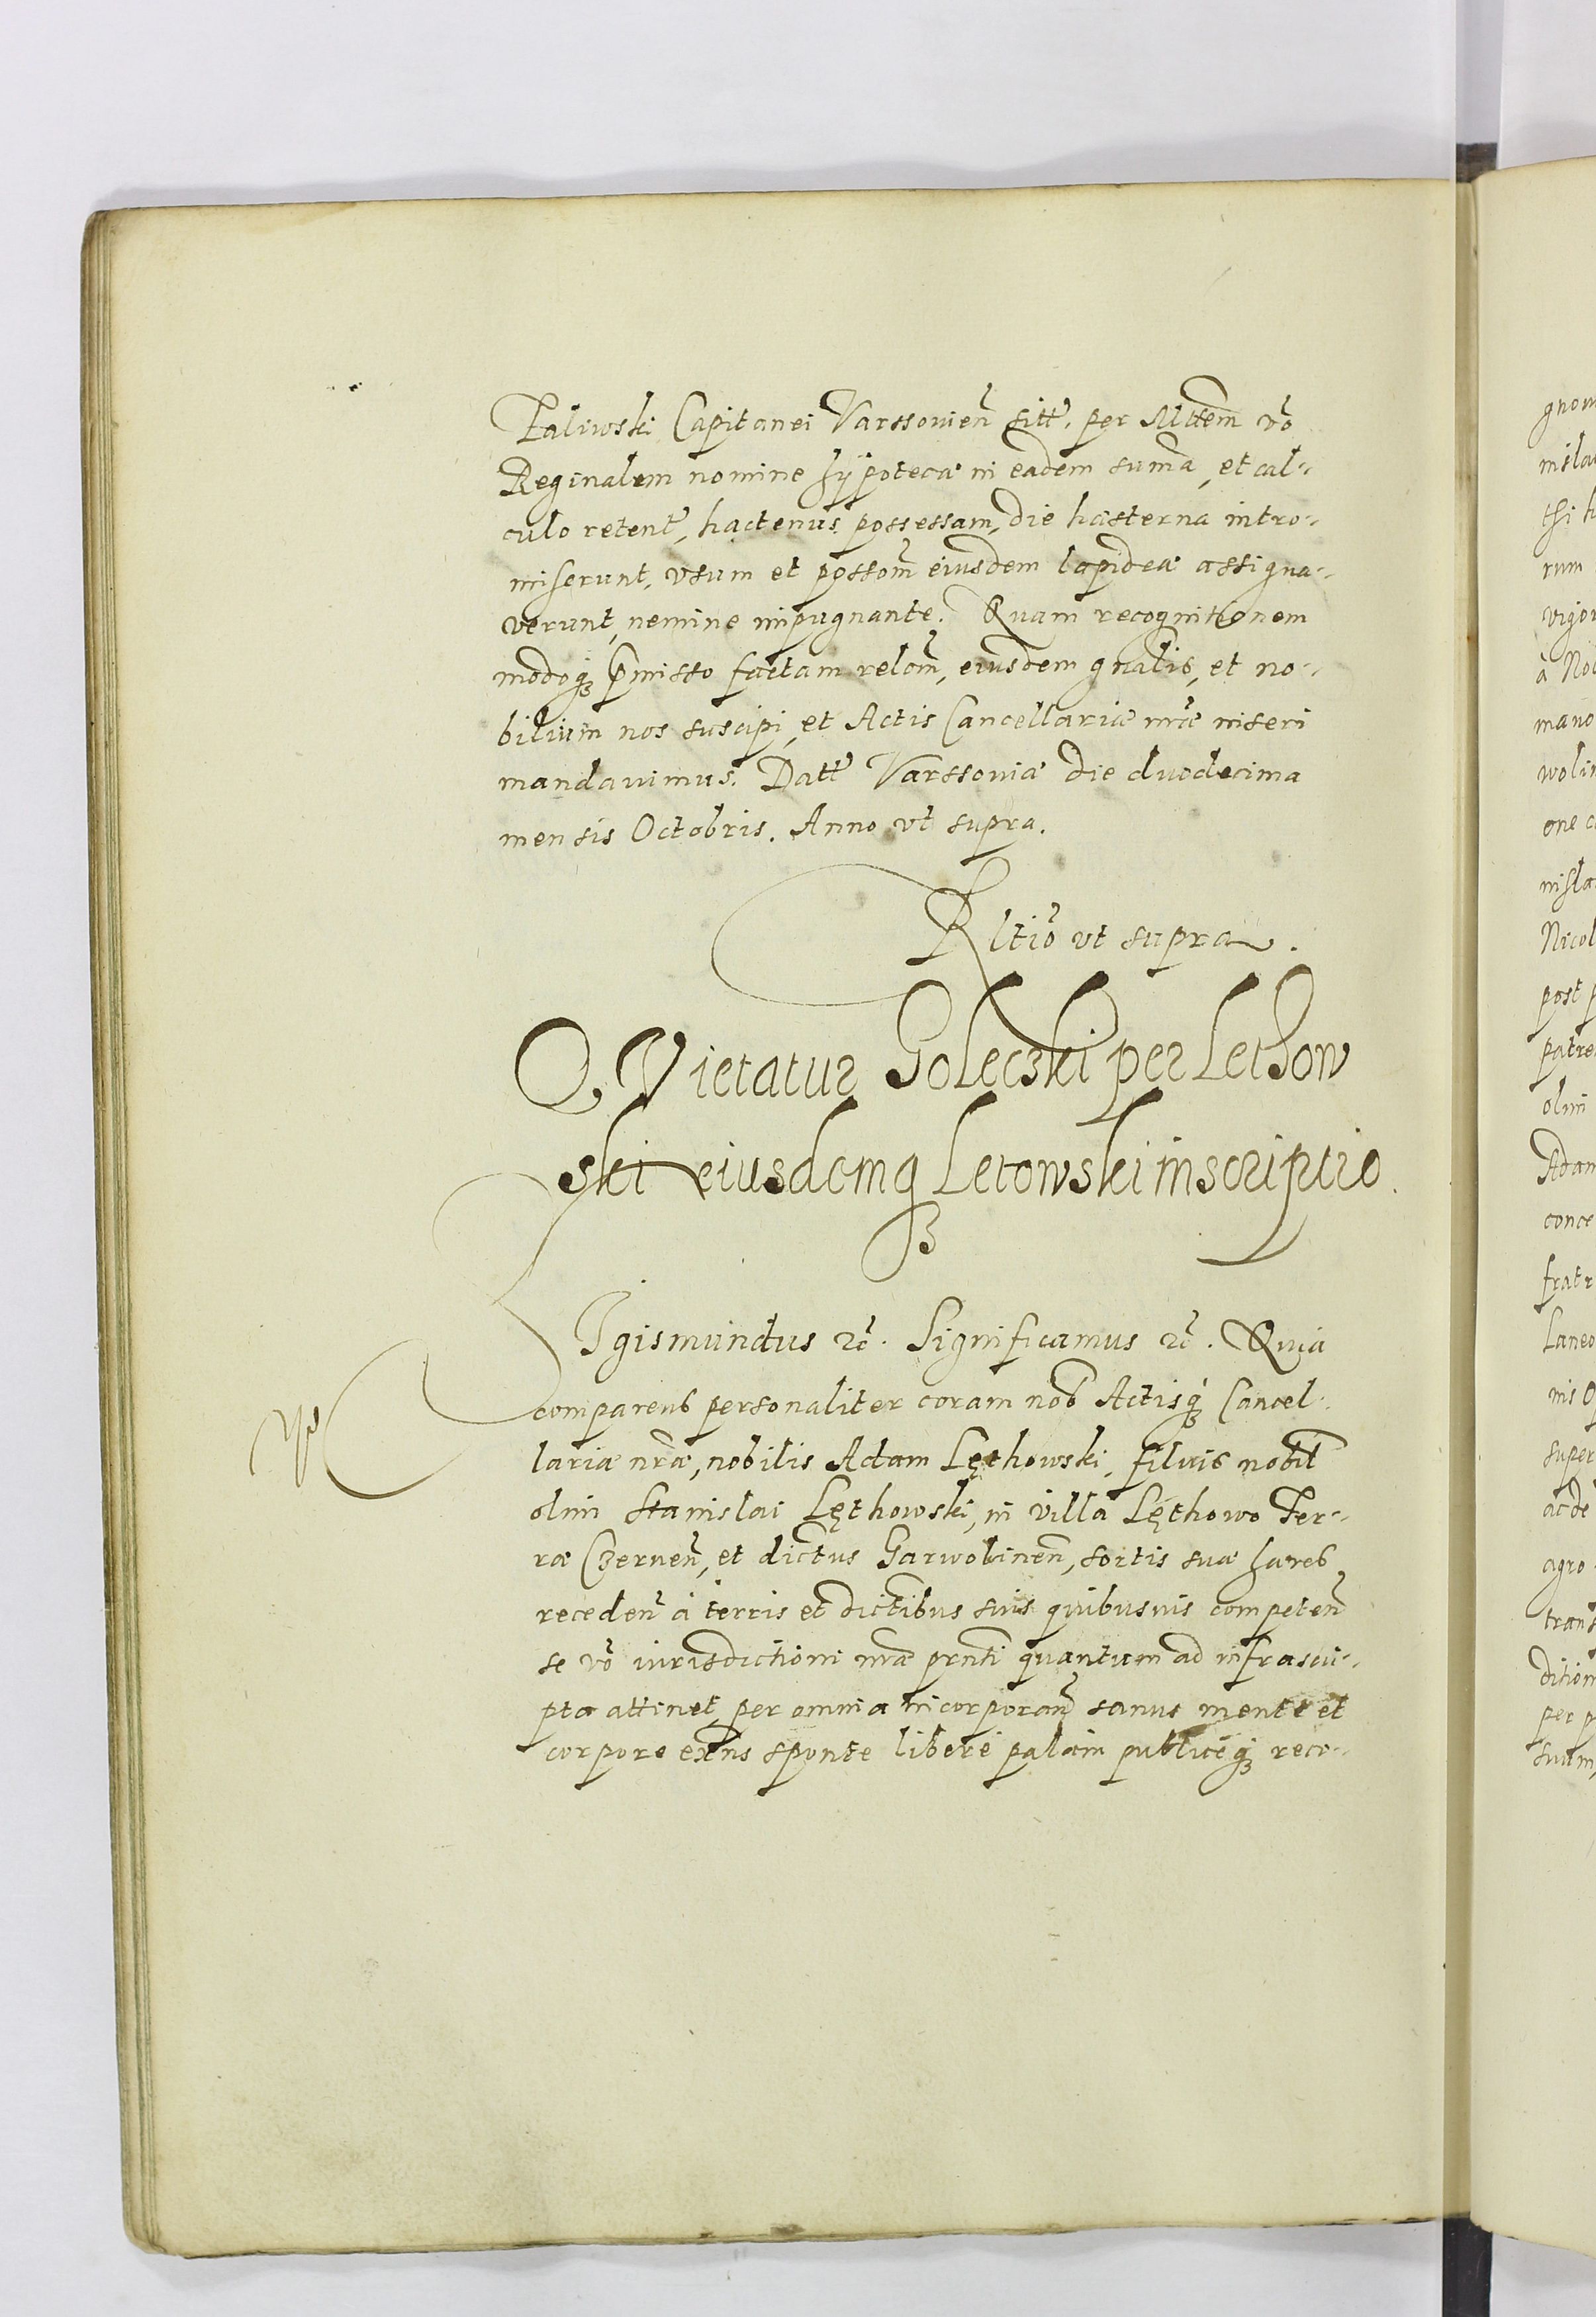 Zaliwski Capitanei Varssovien̄ sitt̄. per Mttem̄ v̄o
Reginalem nomine hypotecæ in eadem sum̄a, et cal-
culo retent̄, hactenus possessam, die hæsterna intro-
miserunt, vsum et possom̄ eiusdem lapideæ assigna-
verunt, nemine impugnante. Quam recognitionem
modoq; p̄misso factam relom̄, eiusdem gnalis, et no-
bilium nos suscipi, et Actis Cancellariæ nr̄æ inseri
mandavimus. Datt̄ Varssoviæ die duodecima
mensis Octobris. Anno vt supra.
Rltio̅ vt supra.
QVietatur Goleczki per Lethow
ski eiusdemq; Letowski inscriptio.
SIgismundus ꝛc̄. Significamus ꝛc̄. Quia
comparens personaliter coram nob̄ Actisq; Cancel-
lariæ nr̄æ, nobilis Adam Lęthowski, filius nobil̄
olim Stanislai Lęthowski, in villa Lęthowo Ter-
ræ Czernen̄, et dictus Garwolinen̄, sortis suæ hæres,
receden̄ à terris et dictibus suis quibusuis competen̄
se v̄o iurisdictioni nr̄æ prn̄ti quantum ad infrascri-
pta attinet, per omnia incorporan̄ sanus mente et
corpore exn̄s sponte liberè palàm publicèq; reco-
gnom
nisla
thi h
rum
vigor
à No
mano
wolin
one c
nisla
Nicol
post p
patre
olim
Adam
conce
fratr
Laneo
nis q
super
ac de
agro
trans
dition
per p
suum,